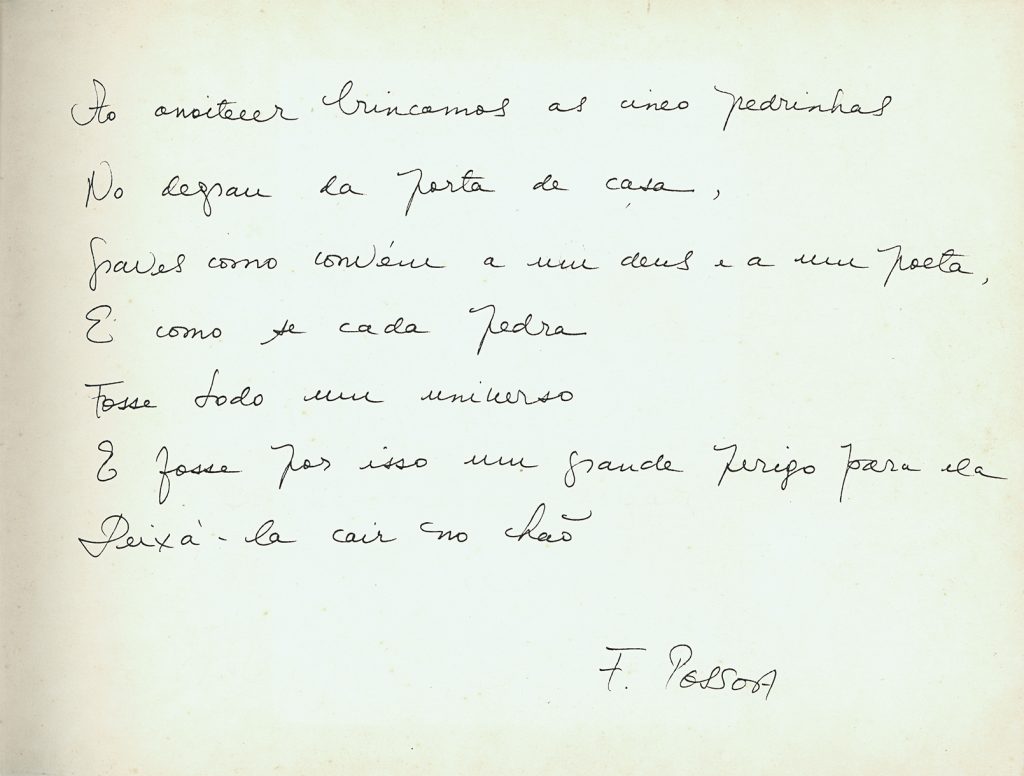 Ao anoitecer brincamos as cinco pedrinhas
No degrau da porta de casa,
Graves como convém a um deus e a um poeta,
E como se cada pedra
Fosse todo um universo
E fosse por isso um grande perigo para ela
Deixá-la cair no chão
F. Pessoa